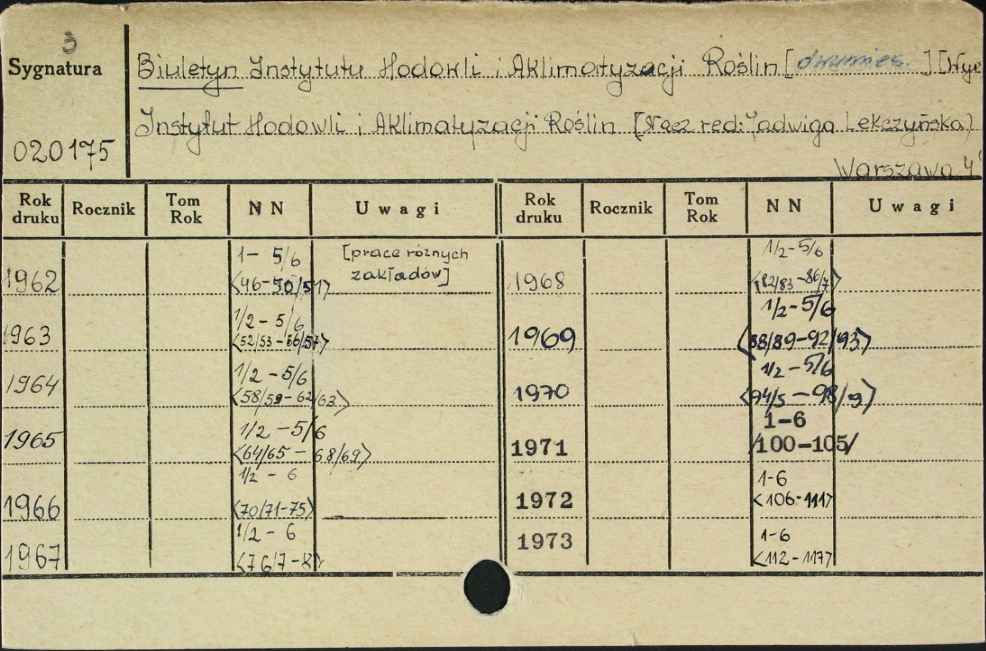 3
Sygnatura
020175
Biuletyn Instytutu Hodowli i Aklimatyzacji Roślin [dwumies.] [Wyd
Instytut Hodowli i Aklimatyzacji Roślin [Nacz red: Jadwiga Lekczyńska)
Warszawa 4°
Rok druku Rocznik Tom Rok N N Uwagi Rok druku Rocznik Tom Rok N N Uwagi
1962 1- 5/6 <46-50/51> [prace różnych zakładów]
1963 1/2 - 5/6 <52/53-56/57>
1964 1/2 - 5/6 <58/59-62/63>
1965 1/2 - 5/6 <64/65 - 68/69>
1966 1/2 - 6 <70/71-75>
1967 1/2 - 6
1968 1/2-5/6 <82/83-86/7>
1969 1/2-5/6 <88/89-92/93>
1970 1/2-5/6 <94/5-98/9>
1971 1-6 /100-105/
1972 1-6 <106-111>
1973 1-6 <112-117>